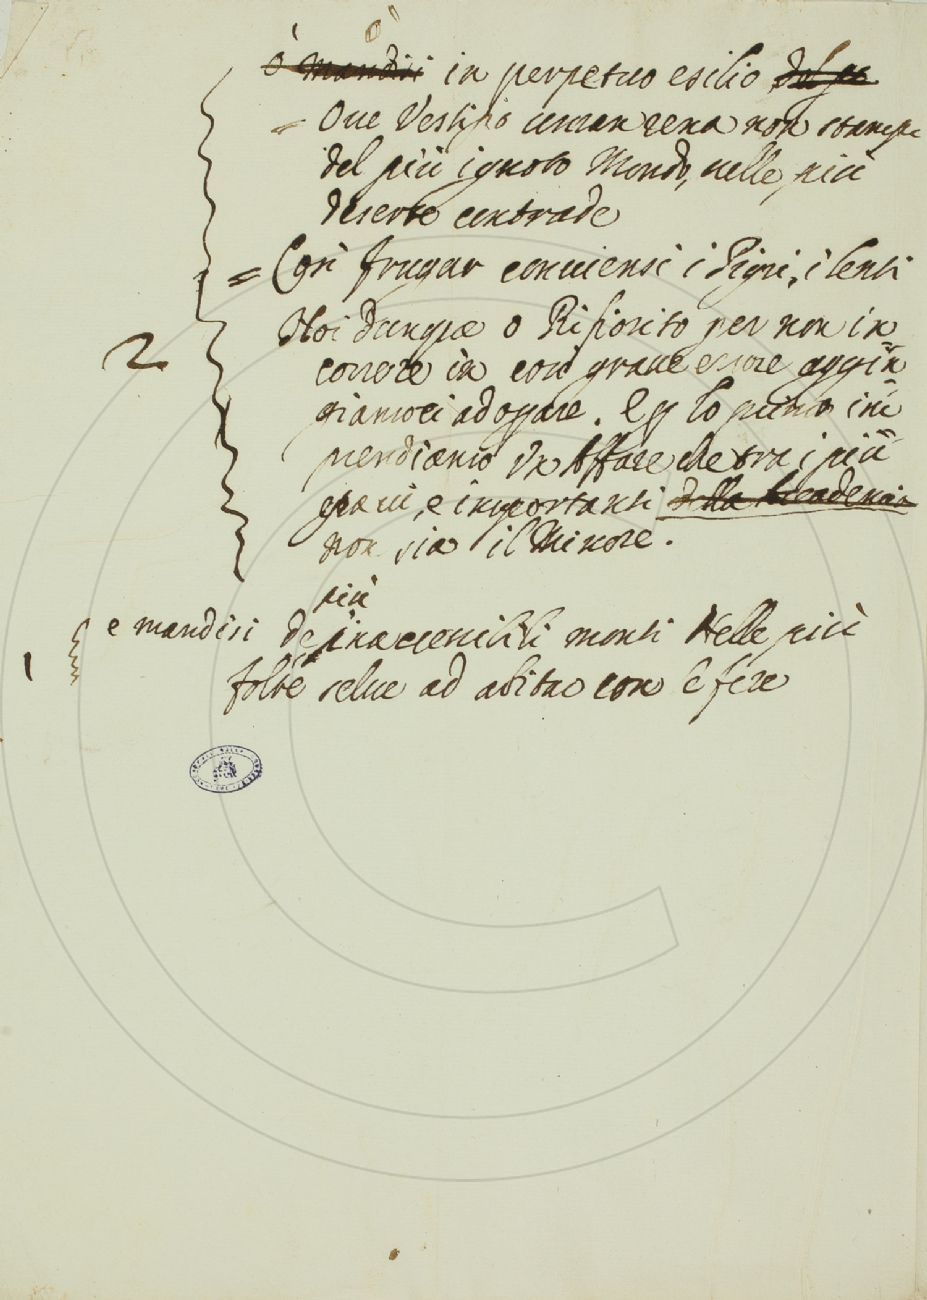 ò
ò mandisi in perpetuo esilio del più
= Oue Vestigio uman rena non stampi
del più ignoto Mondo, nelle più
deserte contrade
= Così frugar conuiensi i Pigri, i lenti
Noi dunque o Rifiorito per non in
correre in così graue errore accin
giamoci ad oprare. E p lo primo im
prendiamo un Affare che tra i più
graui, e importanti della Accademia
non sia il Minore.
2
più
e mandisi de inaccessibili monti Nelle più
1
folte selue ad abitar con le fere